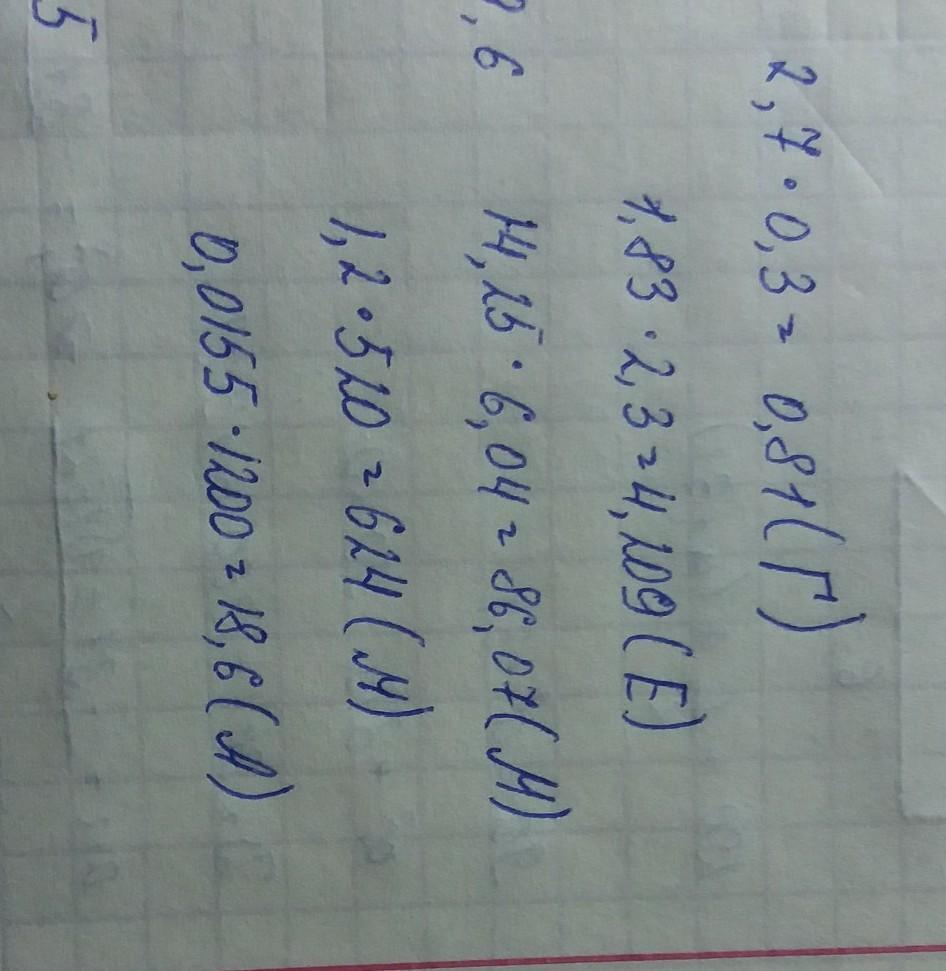 2,7 · 0,3 = 0,81 (Г)
1,83 · 2,3 = 4,209 (Е)
,6
14,25 · 6,04 = 86,07 (М)
1,2 · 520 = 624 (М)
0,0155 · 1200 = 18,6 (А)
5